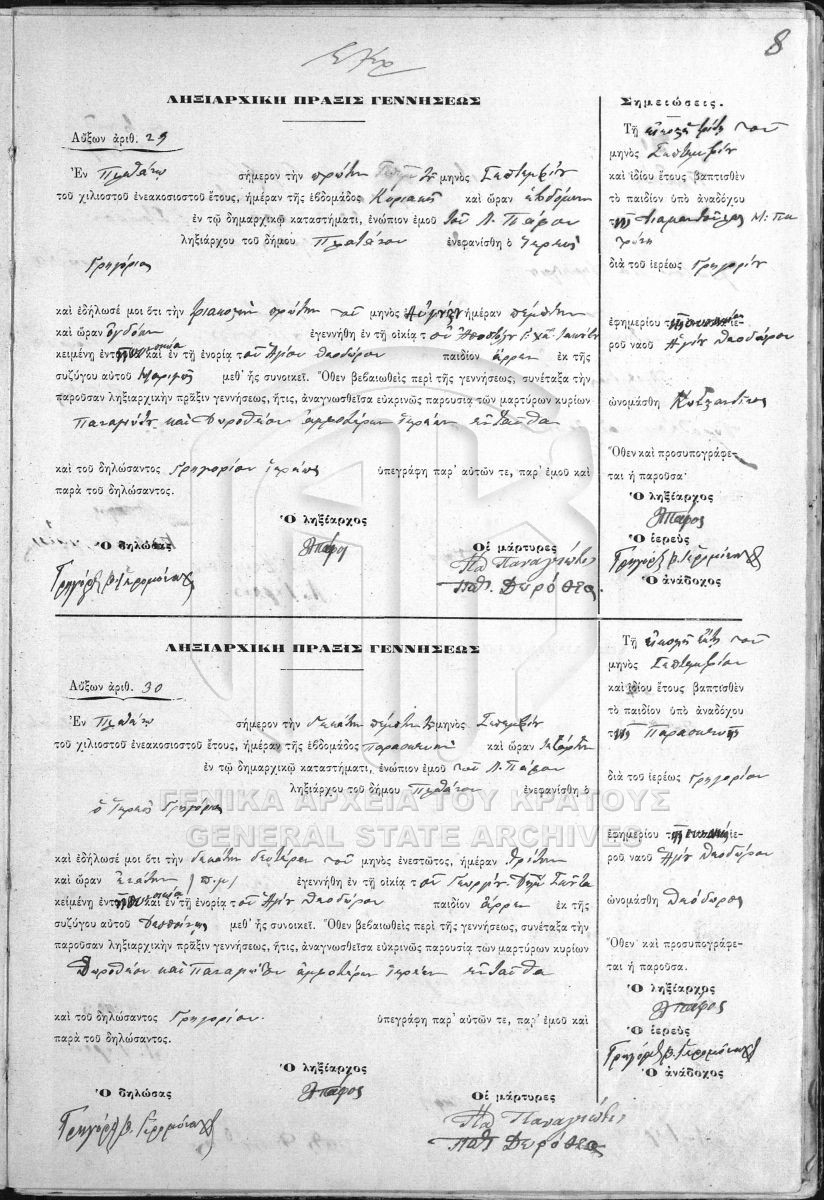 8
ΛΗΞΙΑΡΧΙΚΗ ΠΡΑΞΙΣ ΓΕΝΝΗΣΕΩΣ
Αὔξων ἀριθ. 29
Ἐν Πλατάνῳ σήμερον τὴν πρώτην μηνὸς Σεπτεμβρίου
τοῦ χιλιοστοῦ ἐνεακοσιοστοῦ ἔτους, ἡμέραν τῆς ἑβδομάδος Κυριακὴν καὶ ὥραν ἑβδόμην
ἐν τῷ δημαρχικῷ καταστήματι, ἐνώπιον ἐμοῦ τοῦ Λ. Πάφου
ληξιάρχου τοῦ δήμου Πλατάνου ἐνεφανίσθη ὁ Ἱερεὺς
Γρηγόριος
καὶ ἐδήλωσέ μοι ὅτι τὴν τριακοστὴν πρώτην τοῦ μηνὸς Αὐγούστου ἡμέραν πέμπτην
καὶ ὥραν ὀγδόην ἐγεννήθη ἐν τῇ οἰκίᾳ τοῦ
κειμένῃ ἐν τῇ καὶ ἐν τῇ ἐνορίᾳ τοῦ Ἁγίου Θεοδώρου παιδίον ἄρρεν ἐκ τῆς
συζύγου αὐτοῦ Μαριγῶς μεθ' ἧς συνοικεῖ. Ὅθεν βεβαιωθεὶς περὶ τῆς γεννήσεως, συνέταξα τὴν
παροῦσαν ληξιαρχικὴν πρᾶξιν γεννήσεως, ἥτις, ἀναγνωσθεῖσα εὐκρινῶς παρουσίᾳ τῶν μαρτύρων κυρίων
Παναγιώτου καὶ Δωροθέου ἀμφοτέρων ἱερέων ἐνταῦθα
καὶ τοῦ δηλώσαντος Γρηγορίου Ἱερέως ὑπεγράφη παρ' αὐτῶν τε, παρ' ἐμοῦ καὶ
παρὰ τοῦ δηλώσαντος.
Ὁ ληξίαρχος
ΛΠάφος
Ὁ δηλώσας
Οἱ μάρτυρες
Πα Παναγιώτης
Παπ. Δωρόθεος
Σημειώσεις.
Τῇ εἰκοστῇ τρίτῃ τοῦ
μηνὸς Σεπτεμβρίου
καὶ ἰδίου ἔτους βαπτισθὲν
τὸ παιδίον ὑπὸ ἀναδόχου
διὰ τοῦ ἱερέως Γρηγορίου
ἐφημερίου τοῦ ἱε-
ροῦ ναοῦ Ἁγίου Θεοδώρου
ὠνομάσθη Κωνσταντῖνος
Ὅθεν καὶ προσυπογράφε-
ται ἡ παροῦσα·
Ὁ ληξίαρχος
ΛΠάφος
Ὁ ἱερεὺς
Ὁ ἀνάδοχος
ΛΗΞΙΑΡΧΙΚΗ ΠΡΑΞΙΣ ΓΕΝΝΗΣΕΩΣ
Αὔξων ἀριθ. 30
Ἐν Πλατάνῳ σήμερον τὴν δεκάτην πέμπτην τοῦ μηνὸς Σεπτεμβρίου
τοῦ χιλιοστοῦ ἐνεακοσιοστοῦ ἔτους, ἡμέραν τῆς ἑβδομάδος Παρασκευὴν καὶ ὥραν τετάρτην
ἐν τῷ δημαρχικῷ καταστήματι, ἐνώπιον ἐμοῦ τοῦ Λ. Πάφου
ληξιάρχου τοῦ δήμου Πλατάνου ἐνεφανίσθη ὁ
ὁ Ἱερεὺς Γρηγόριος
ΓΕΝΙΚΑ ΑΡΧΕΙΑ ΤΟΥ ΚΡΑΤΟΥΣ
GENERAL STATE ARCHIVES
καὶ ἐδήλωσέ μοι ὅτι τὴν δεκάτην δευτέραν τοῦ μηνὸς ἐνεστῶτος, ἡμέραν τρίτην
καὶ ὥραν ἐνάτην (π.μ) ἐγεννήθη ἐν τῇ οἰκίᾳ τοῦ Γεωργίου
κειμένῃ ἐν τῇ καὶ ἐν τῇ ἐνορίᾳ τοῦ Ἁγίου Θεοδώρου παιδίον ἄρρεν ἐκ τῆς
συζύγου αὐτοῦ Δεσποίνης μεθ' ἧς συνοικεῖ. Ὅθεν βεβαιωθεὶς περὶ τῆς γεννήσεως, συνέταξα τὴν
παροῦσαν ληξιαρχικὴν πρᾶξιν γεννήσεως, ἥτις, ἀναγνωσθεῖσα εὐκρινῶς παρουσίᾳ τῶν μαρτύρων κυρίων
Δωροθέου καὶ Παναγιώτου ἀμφοτέρων ἱερέων ἐνταῦθα
καὶ τοῦ δηλώσαντος Γρηγορίου ὑπεγράφη παρ' αὐτῶν τε, παρ' ἐμοῦ καὶ
παρὰ τοῦ δηλώσαντος.
Ὁ ληξίαρχος
ΛΠάφος
Ὁ δηλώσας
Οἱ μάρτυρες
Πα Παναγιώτης
Παπ Δωρόθεος
Τῇ εἰκοστῇ ἕκτῃ τοῦ
μηνὸς Σεπτεμβρίου
καὶ ἰδίου ἔτους βαπτισθὲν
τὸ παιδίον ὑπὸ ἀναδόχου
τῆς Παρασκευῆς
διὰ τοῦ ἱερέως Γρηγορίου
ἐφημερίου τοῦ ἱε-
ροῦ ναοῦ Ἁγίου Θεοδώρου
ὠνομάσθη Θεόδωρος
Ὅθεν καὶ προσυπογράφε-
ται ἡ παροῦσα.
Ὁ ληξίαρχος
ΛΠάφος
Ὁ ἱερεὺς
Ὁ ἀνάδοχος